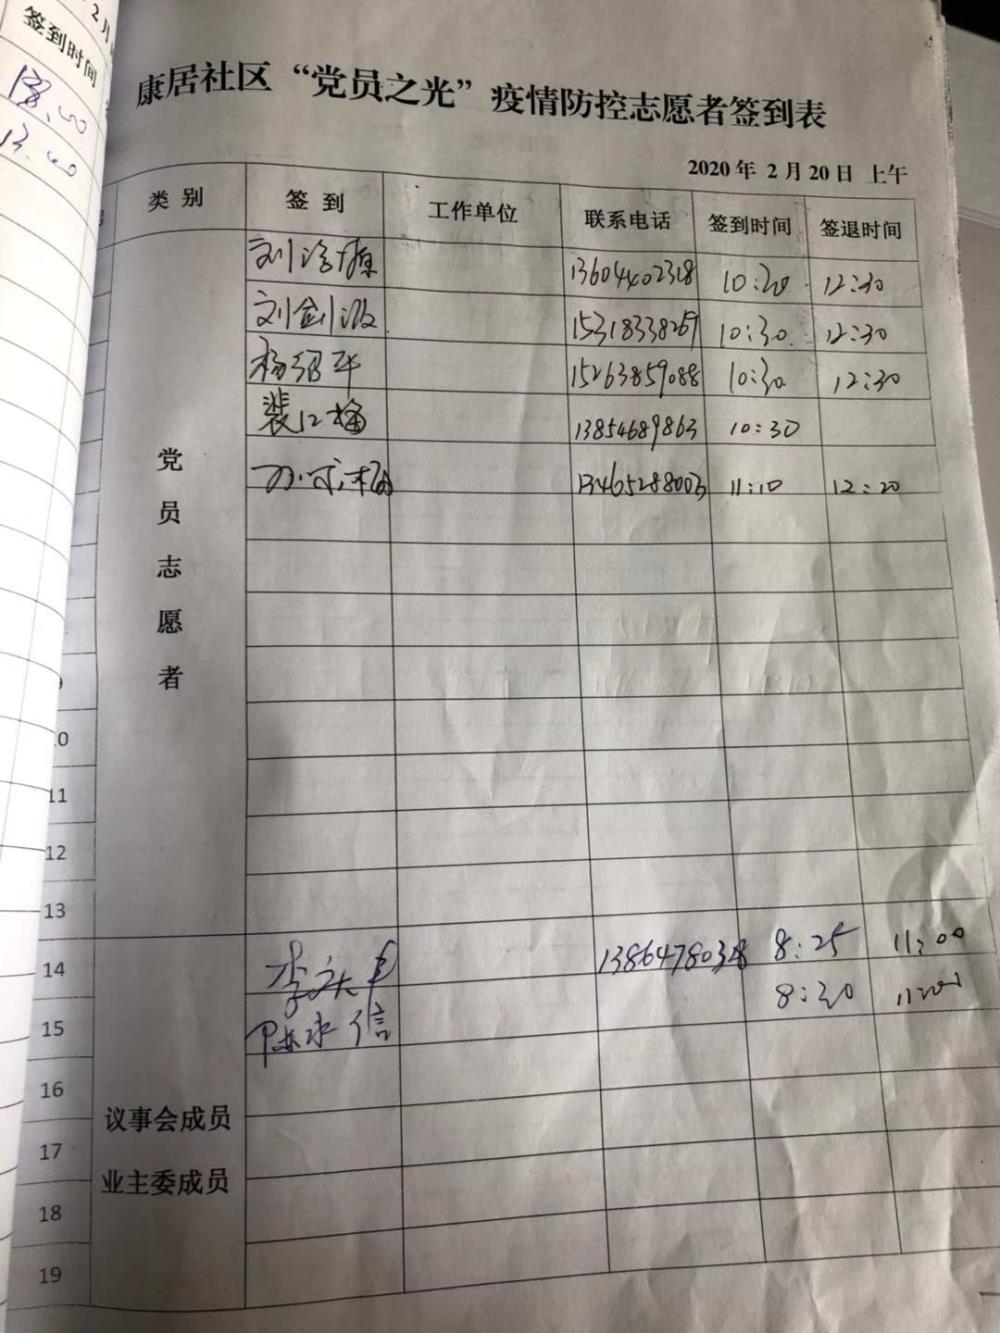 2月
签到时间
13.00
康居社区“党员之光”疫情防控志愿者签到表
2020年 2月20日 上午
类别 签到 工作单位 联系电话 签到时间 签退时间
13604402318 10:20 12:30
刘剑波 15318338269 10:30 12:30
杨绍平 15263859088 10:30 12:30
裴红梅 13854689863 10:30
13465288003 11:10 12:20
党员志愿者
10
11
12
13
14 8:25 11:00
15 陈永信 8:30 11:00
16
议事会成员
17
业主委成员
18
19